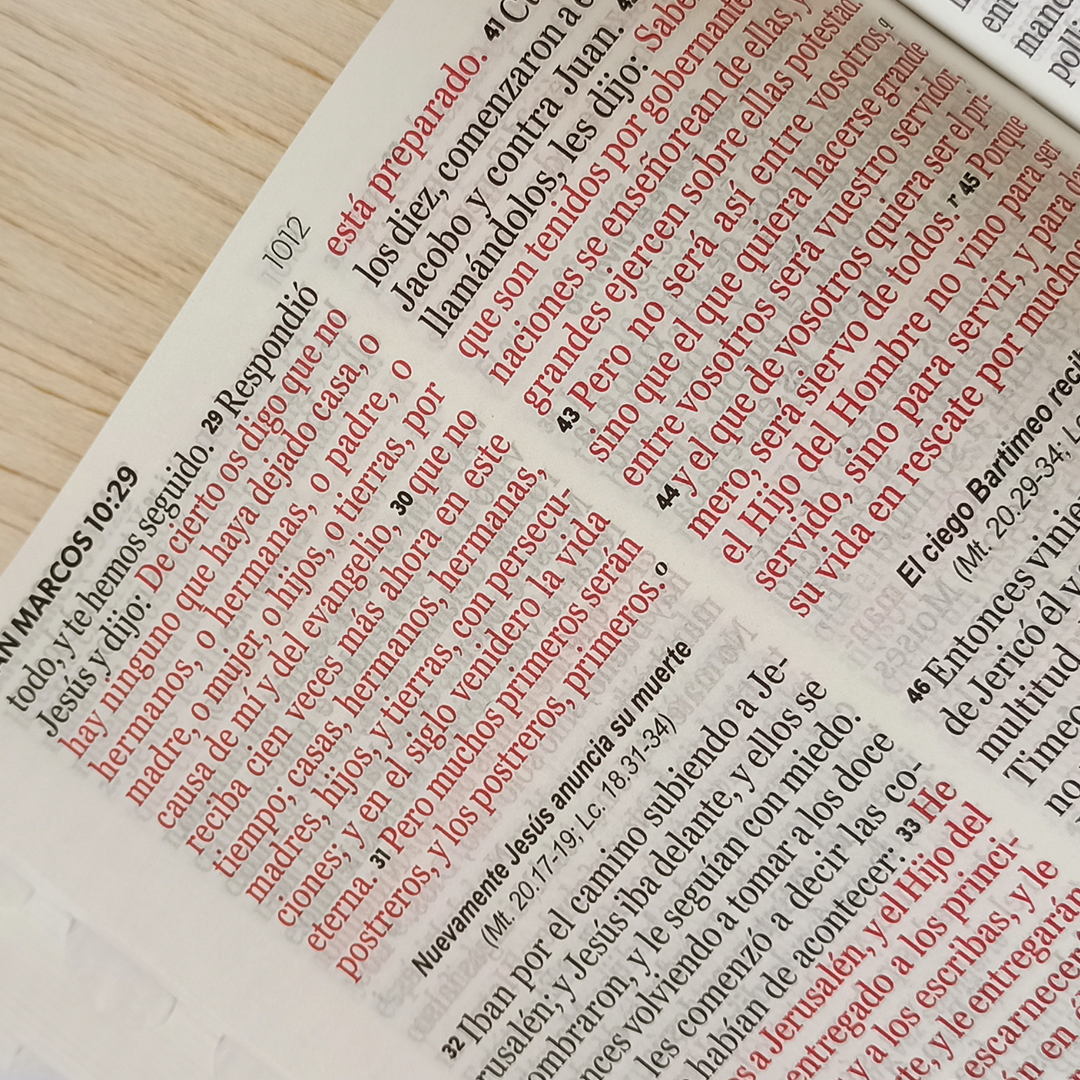 MARCOS 10:29
1012
todo, y te hemos seguido. 29 Respondió
Jesús y dijo: De cierto os digo que no
hay ninguno que haya dejado casa, o
hermanos, o hermanas, o padre, o
madre, o mujer, o hijos, o tierras, por
causa de mí y del evangelio, 30 que no
reciba cien veces más ahora en este
tiempo; casas, hermanos, hermanas,
madres, hijos, y tierras, con persecu-
ciones; y en el siglo venidero la vida
eterna. 31 Pero muchos primeros serán
postreros, y los postreros, primeros.o
Nuevamente Jesús anuncia su muerte
(Mt. 20.17-19; Lc. 18.31-34)
32 Iban por el camino subiendo a Je-
rusalén; y Jesús iba delante, y ellos se
ombraron, y le seguían con miedo.
nces volviendo a tomar a los doce
les comenzó a decir las co-
habían de acontecer: 33 He
a Jerusalén, y el Hijo del
entregado a los princi-
y a los escribas, y le
te, y le entregarán
escarnecer
está preparado. 41
los diez, comenzaron a
Jacobo y contra Juan.
llamándolos, les dijo:
que son tenidos por gobernante
naciones se enseñorean de ellas, y
grandes ejercen sobre ellas potestad
43 Pero no será así entre vosotros,q
sino que el que quiera hacerse grande
entre vosotros será vuestro servidor,
44 y el que de vosotros quiera ser el pri-
mero, será siervo de todos. r 45 Porque
el Hijo del Hombre no vino para ser
servido, sino para servir, y para
su vida en rescate por mucho
El ciego Bartimeo reci
(Mt. 20.29-34;
46 Entonces vinie
de Jericó él y
multitud
Timeo
no